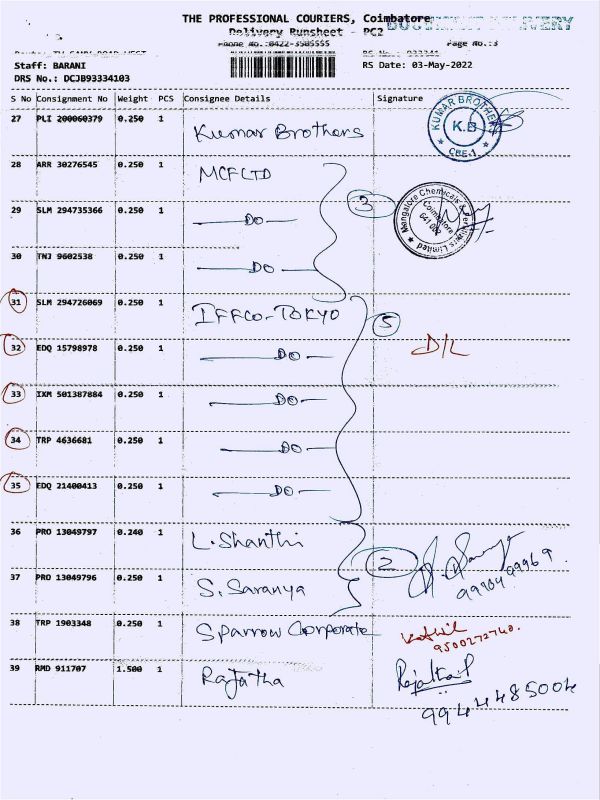 THE PROFESSIONAL COURIERS, Coimbatore
DOCUMENT DELIVERY
Delivery Runsheet - PC2
Phone No.:0422-3505555 Page No.:3
Staff: BARANI RS Date: 03-May-2022
DRS No.: DCJB93334103
S No Consignment No Weight PCS Consignee Details Signature
27 PLI 200060379 0.250 1 Kumar Brothers KUMAR BROTHERS K.B CBE-1
28 ARR 30276545 0.250 1 MCFLTD
29 SLM 294735366 0.250 1 DO 3 Mangalore Chemicals & Fertilizers Limited Coimbatore 641 002
30 TNJ 9602538 0.250 1 DO
31 SLM 294726069 0.250 1 IFFCO-TOKYO 5
32 EDQ 15798978 0.250 1 DO D/L
33 IXM 501387884 0.250 1 DO
34 TRP 4636681 0.250 1 DO
35 EDQ 21400413 0.250 1 DO
36 PRO 13049797 0.240 1 L. Shanthi
37 PRO 13049796 0.250 1 S. Saranya 2
38 TRP 1903348 0.250 1 Sparrow Corporate 9500272740.
39 RMD 911707 1.500 1 Rajatha
9944485004